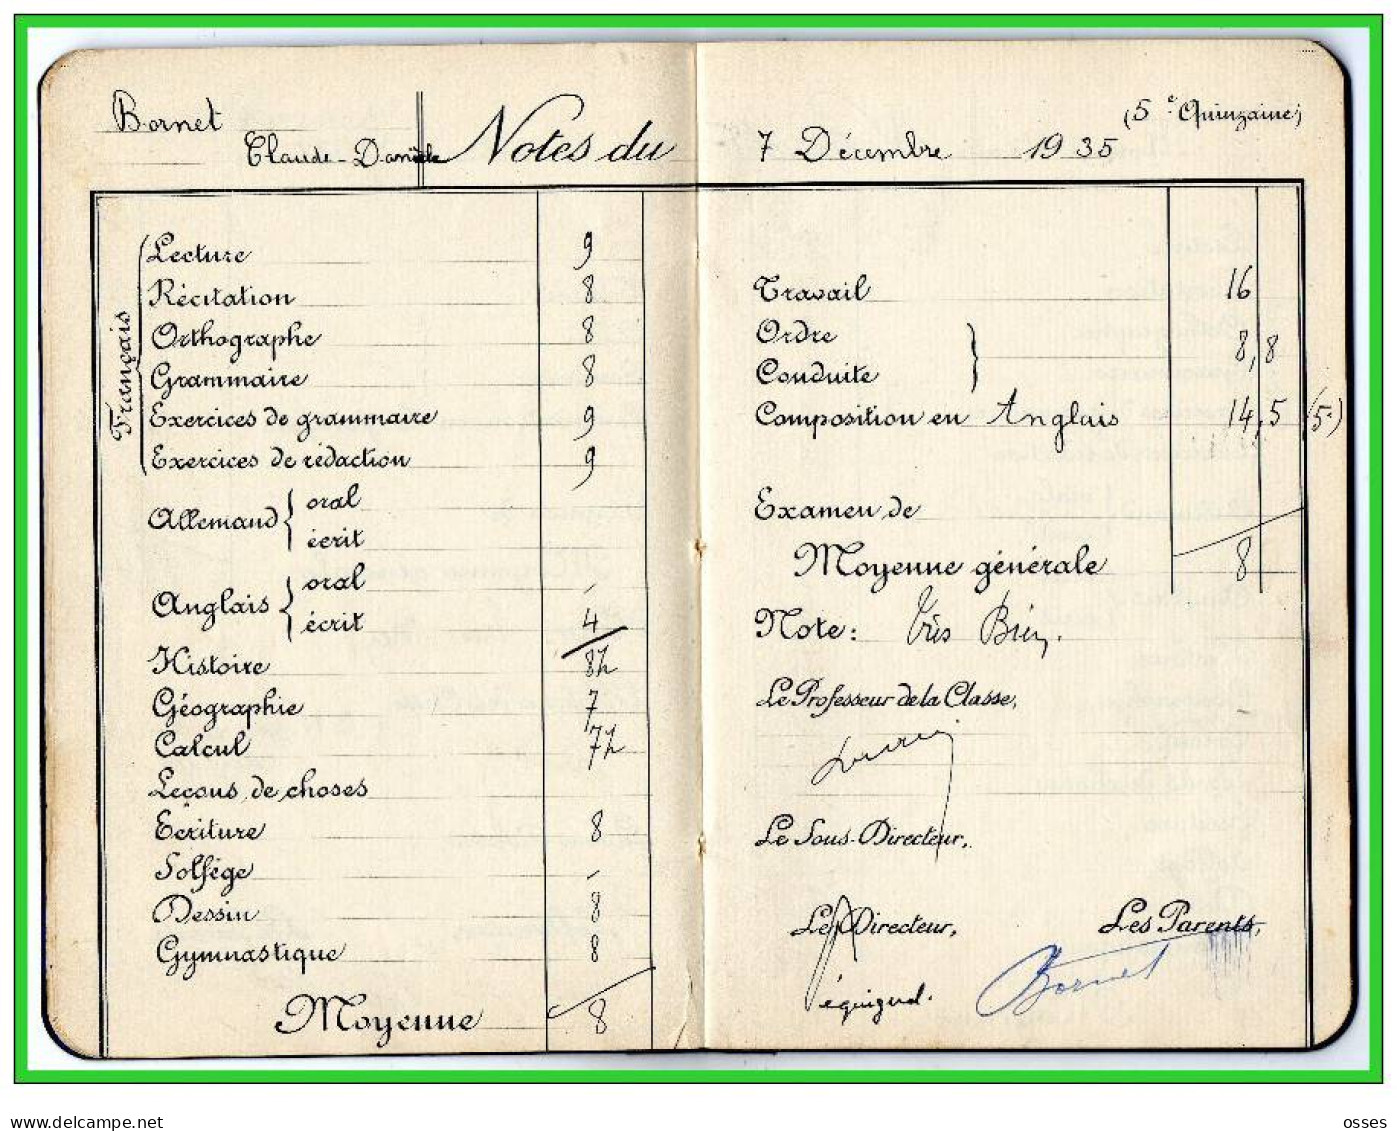 (5e Quinzaine)
Bornet
Claude-Danièle Notes du 7 Décembre 1935
Français
Lecture 9
Récitation 8
Orthographe 8
Grammaire 8
Exercices de grammaire 9
Exercices de rédaction 9
Allemand { oral
écrit
Anglais { oral -
écrit 4
Histoire 8½
Géographie 7
Calcul 7½
Leçons de choses
Ecriture 8
Solfége -
Dessin 8
Gymnastique 8
Moyenne 8
Travail 16
Ordre
Conduite } 8,8
Composition en Anglais 14,5 (5e)
Examen de
Moyenne générale 8
Note: Très Bien.
Le Professeur de la Classe,
Le Sous-Directeur,
Le Directeur, Les Parents,
Bornet
delcampe.net
osses